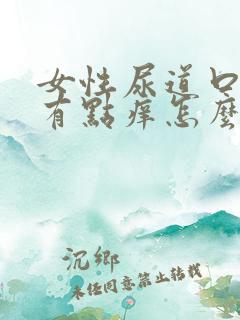 女性尿道口
有點痒怎麼
沉鄉
未任同意禁止转载